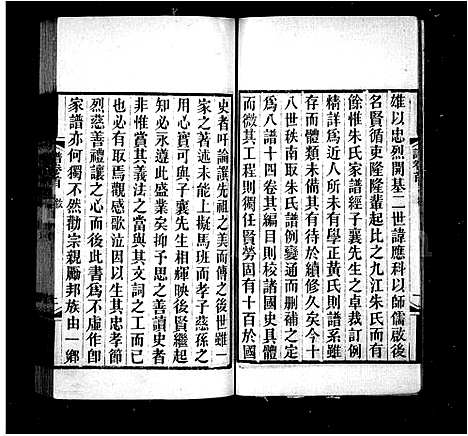 雄以忠烈開基二世諱應科以師儒啟後
名賢循吏隆隆輩起比之九江朱氏而有
餘惟朱氏家譜經子襄先生之卓裁訂例
精詳爲近人所未有學正黃氏則譜系雖
存而體類未備其有待於續修久矣今十
八世秩南取朱氏譜例變通而刪補之定
爲八譜十四卷其綱目則較諸國史合巨
而微其工程則獨任賢勞固有十百於國
史者吁論譔先祖之美而傳之後世雖一
家之著述未能上擬馬班而孝子慈孫之
用心實可與子襄先生相輝映後賢繼起
知必永遵此盛業矣抑予思之善讀史者
非惟賞其義法之當與其文詞之工而已
也必有取焉觀感歌泣因以生其忠孝節
烈慈善禮讓之心而後此書爲不虛作卽
家譜亦何獨不然勸宗親勵邦族由一鄉
譜卷首 鑑